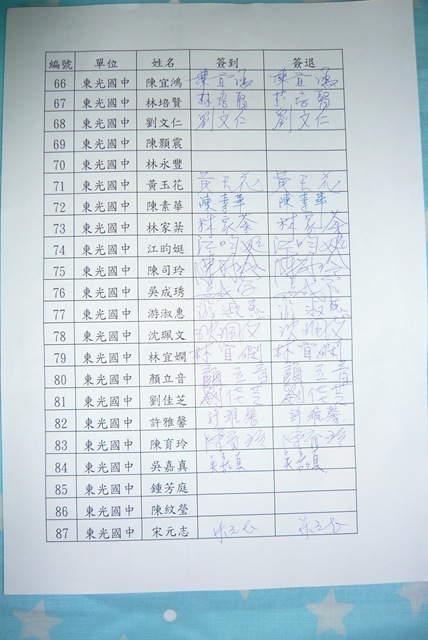 編號 單位 姓名 簽到 簽退
66 東光國中 陳宜鴻 陳宜鴻 陳宜鴻
67 東光國中 林培賢 林培賢 林培賢
68 東光國中 劉文仁 劉文仁 劉文仁
69 東光國中 陳顥震
70 東光國中 林永豐
71 東光國中 黃玉花 黃玉花 黃玉花
72 東光國中 陳素華 陳素華 陳素華
73 東光國中 林家棻 林家棻 林家棻
74 東光國中 江昀娗 江昀娗 江昀娗
75 東光國中 陳司玲 陳司玲 陳司玲
76 東光國中 吳成琇
77 東光國中 游淑惠 游淑惠 游淑惠
78 東光國中 沈珮文 沈珮文 沈珮文
79 東光國中 林宜嫻 林宜嫻 林宜嫻
80 東光國中 顏立音 顏立音 顏立音
81 東光國中 劉佳芝 劉佳芝 劉佳芝
82 東光國中 許雅馨 許雅馨 許雅馨
83 東光國中 陳育玲 陳育玲 陳育玲
84 東光國中 吳嘉真 吳嘉真 吳嘉真
85 東光國中 鍾芳庭
86 東光國中 陳紋瑩
87 東光國中 宋元志